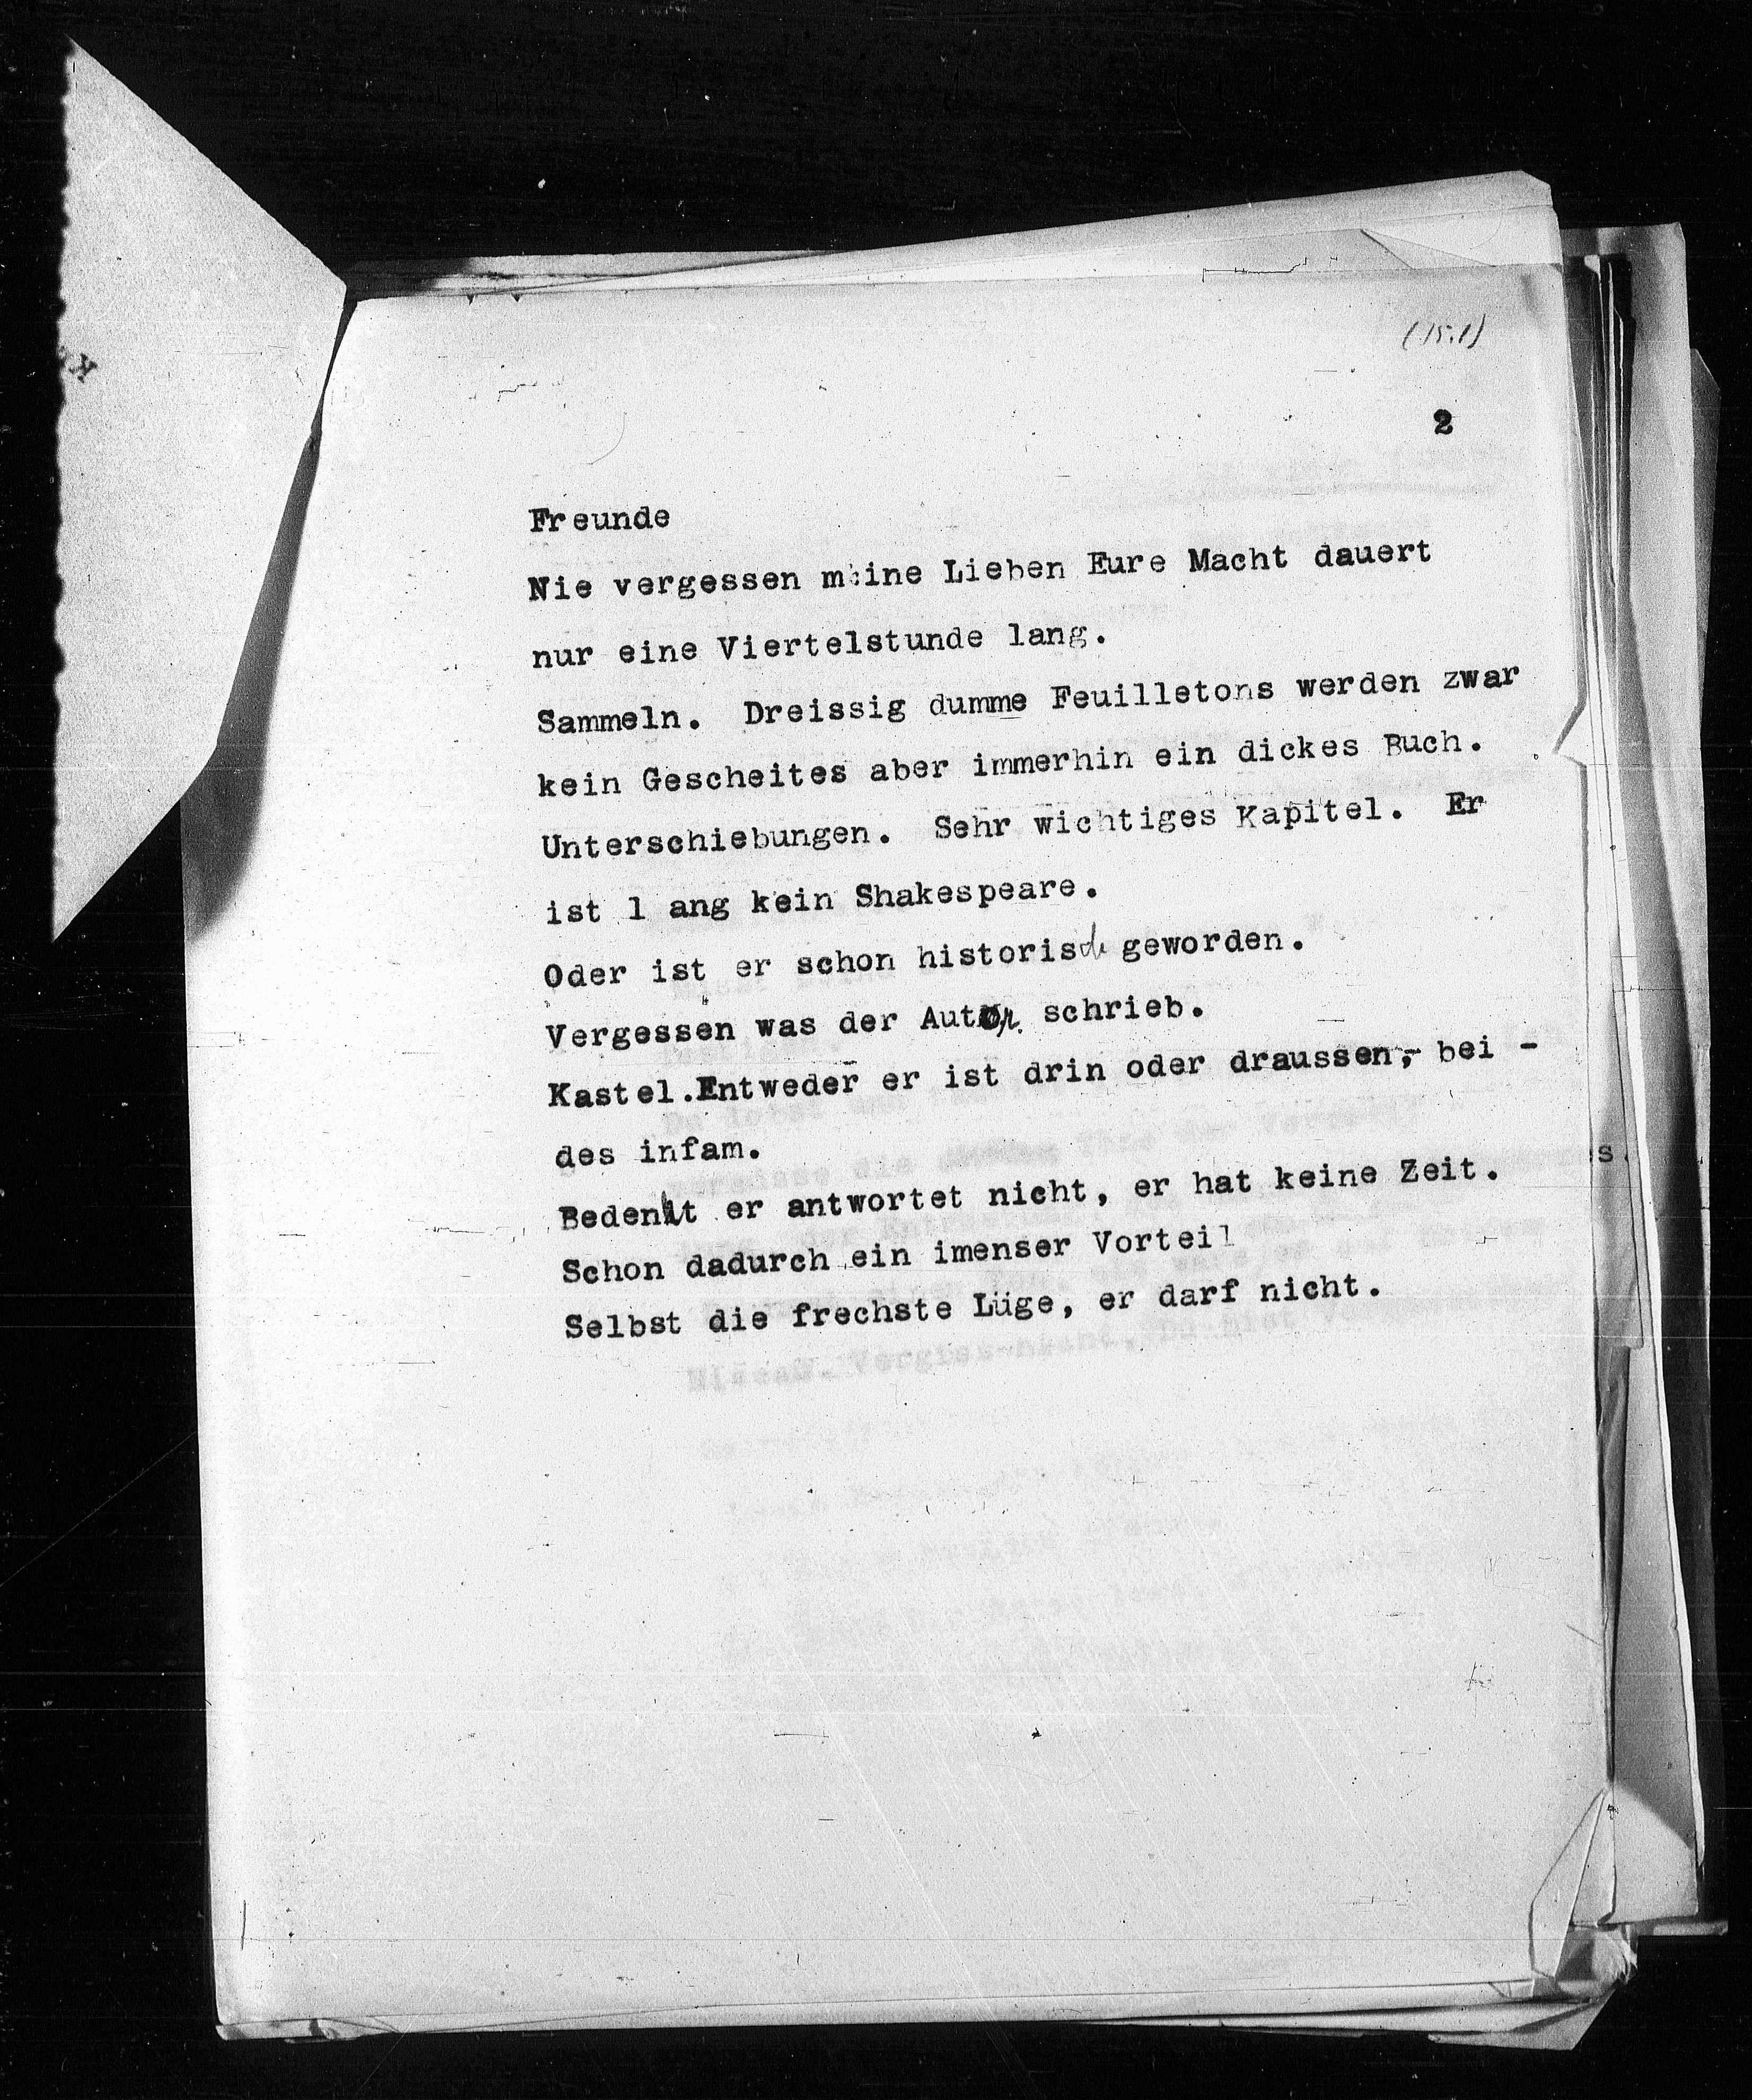 (15.1)
2
Freunde
Nie vergessen meine Lieben Eure Macht dauert
nur eine Viertelstunde lang.
Sammeln. Dreissig dumme Feuilletons werden zwar
kein Gescheites aber immerhin ein dickes Buch.
Unterschiebungen. Sehr wichtiges Kapitel. Er
ist l ang kein Shakespeare.
Oder ist er schon historisch geworden.
Vergessen was der Autor schrieb.
Kastel.Entweder er ist drin oder draussen,- bei -
des infam.
Bedenkt er antwortet nicht, er hat keine Zeit.
Schon dadurch ein imenser Vorteil
Selbst die frechste Lüge, er darf nicht.